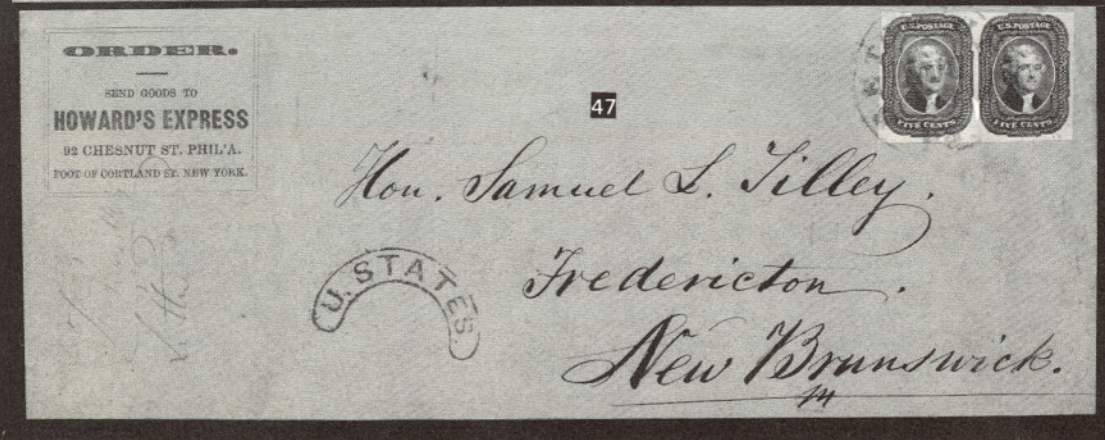 ORDER.
SEND GOODS TO
HOWARD'S EXPRESS
92 CHESNUT ST. PHIL'A.
FOOT OF CORTLAND ST. NEW YORK.
47
U.S. POSTAGE
FIVE CENTS
U.S. POSTAGE
FIVE CENTS
Hon. Samuel L. Tilley.
Fredericton.
New Brunswick.
U. STATES.